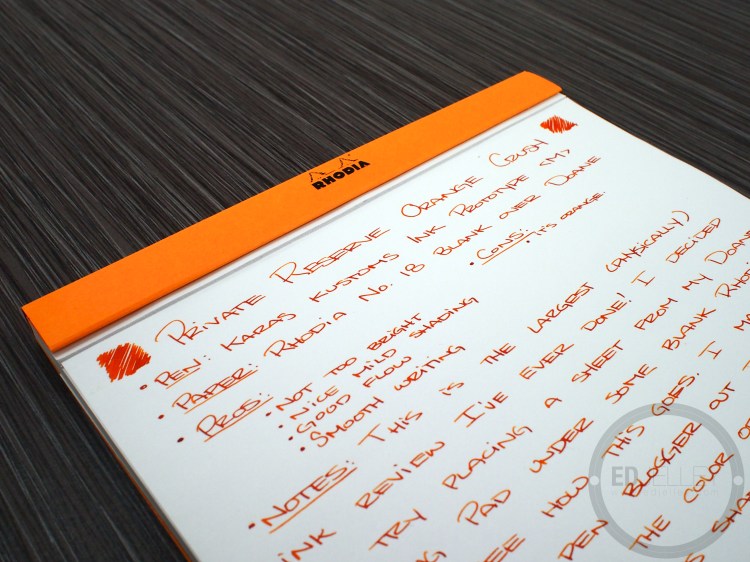 RHODIA
PRIVATE RESERVE ORANGE CRUSH
• PEN: KARAS KUSTOMS INK PROTOTYPE <M>
• PAPER: RHODIA No. 18 BLANK OVER DOANE
• PROS:
• NOT TOO BRIGHT
• NICE MILD SHADING
• GOOD FLOW
• SMOOTH WRITING
• CONS:
• IT'S ORANGE.
• NOTES: THIS IS THE LARGEST (PHYSICALLY)
INK REVIEW I'VE EVER DONE! I DECIDED
TRY PLACING A SHEET FROM MY DOANE
PAD UNDER SOME BLANK
SEE HOW THIS GOES. I
PEN BLOGGER OUT
THE COLOR